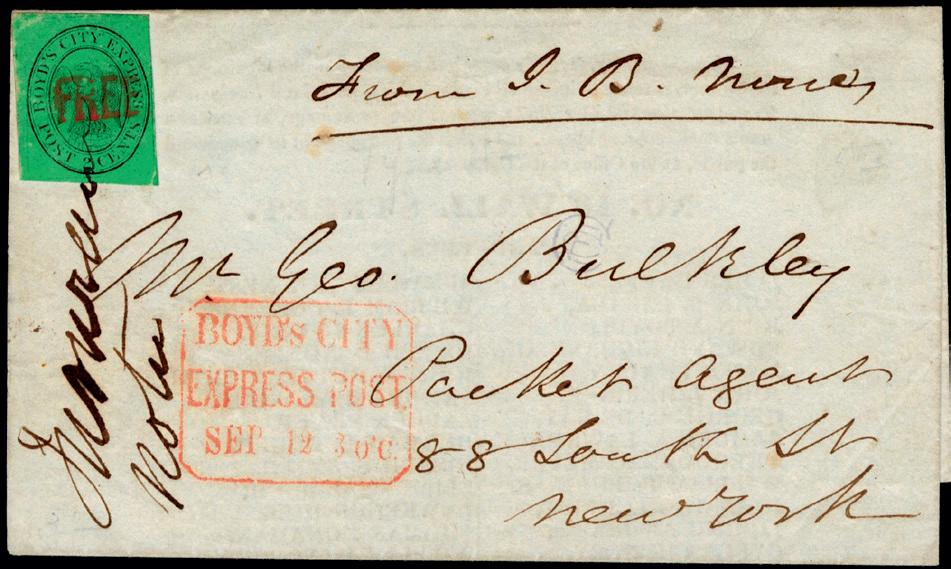 BOYD'S CITY EXPRESS POST 2 CENTS
FREE
From J. B. Nones
Mr. Geo. Bulkley
Packet Agent
88 South St
New York
BOYD'S CITY
EXPRESS POST.
SEP 12 3 O'C.